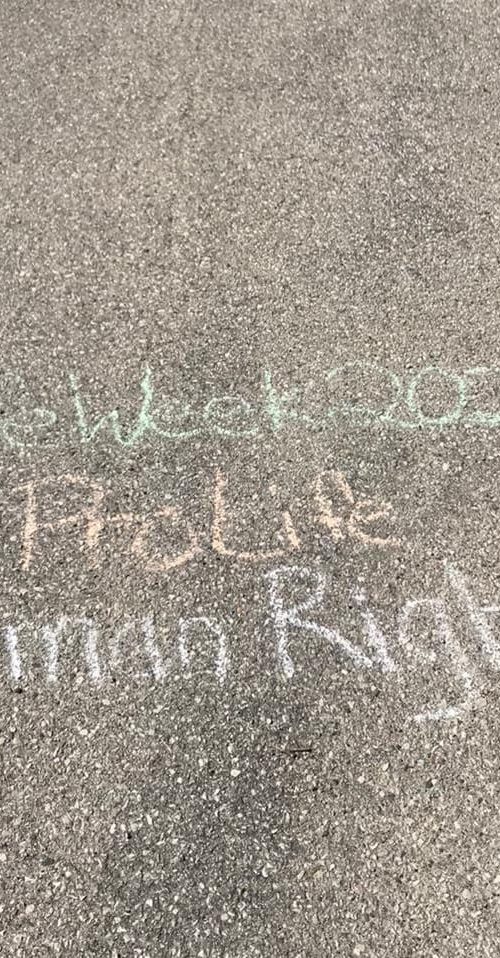 e Week 202
ProLife
man Right